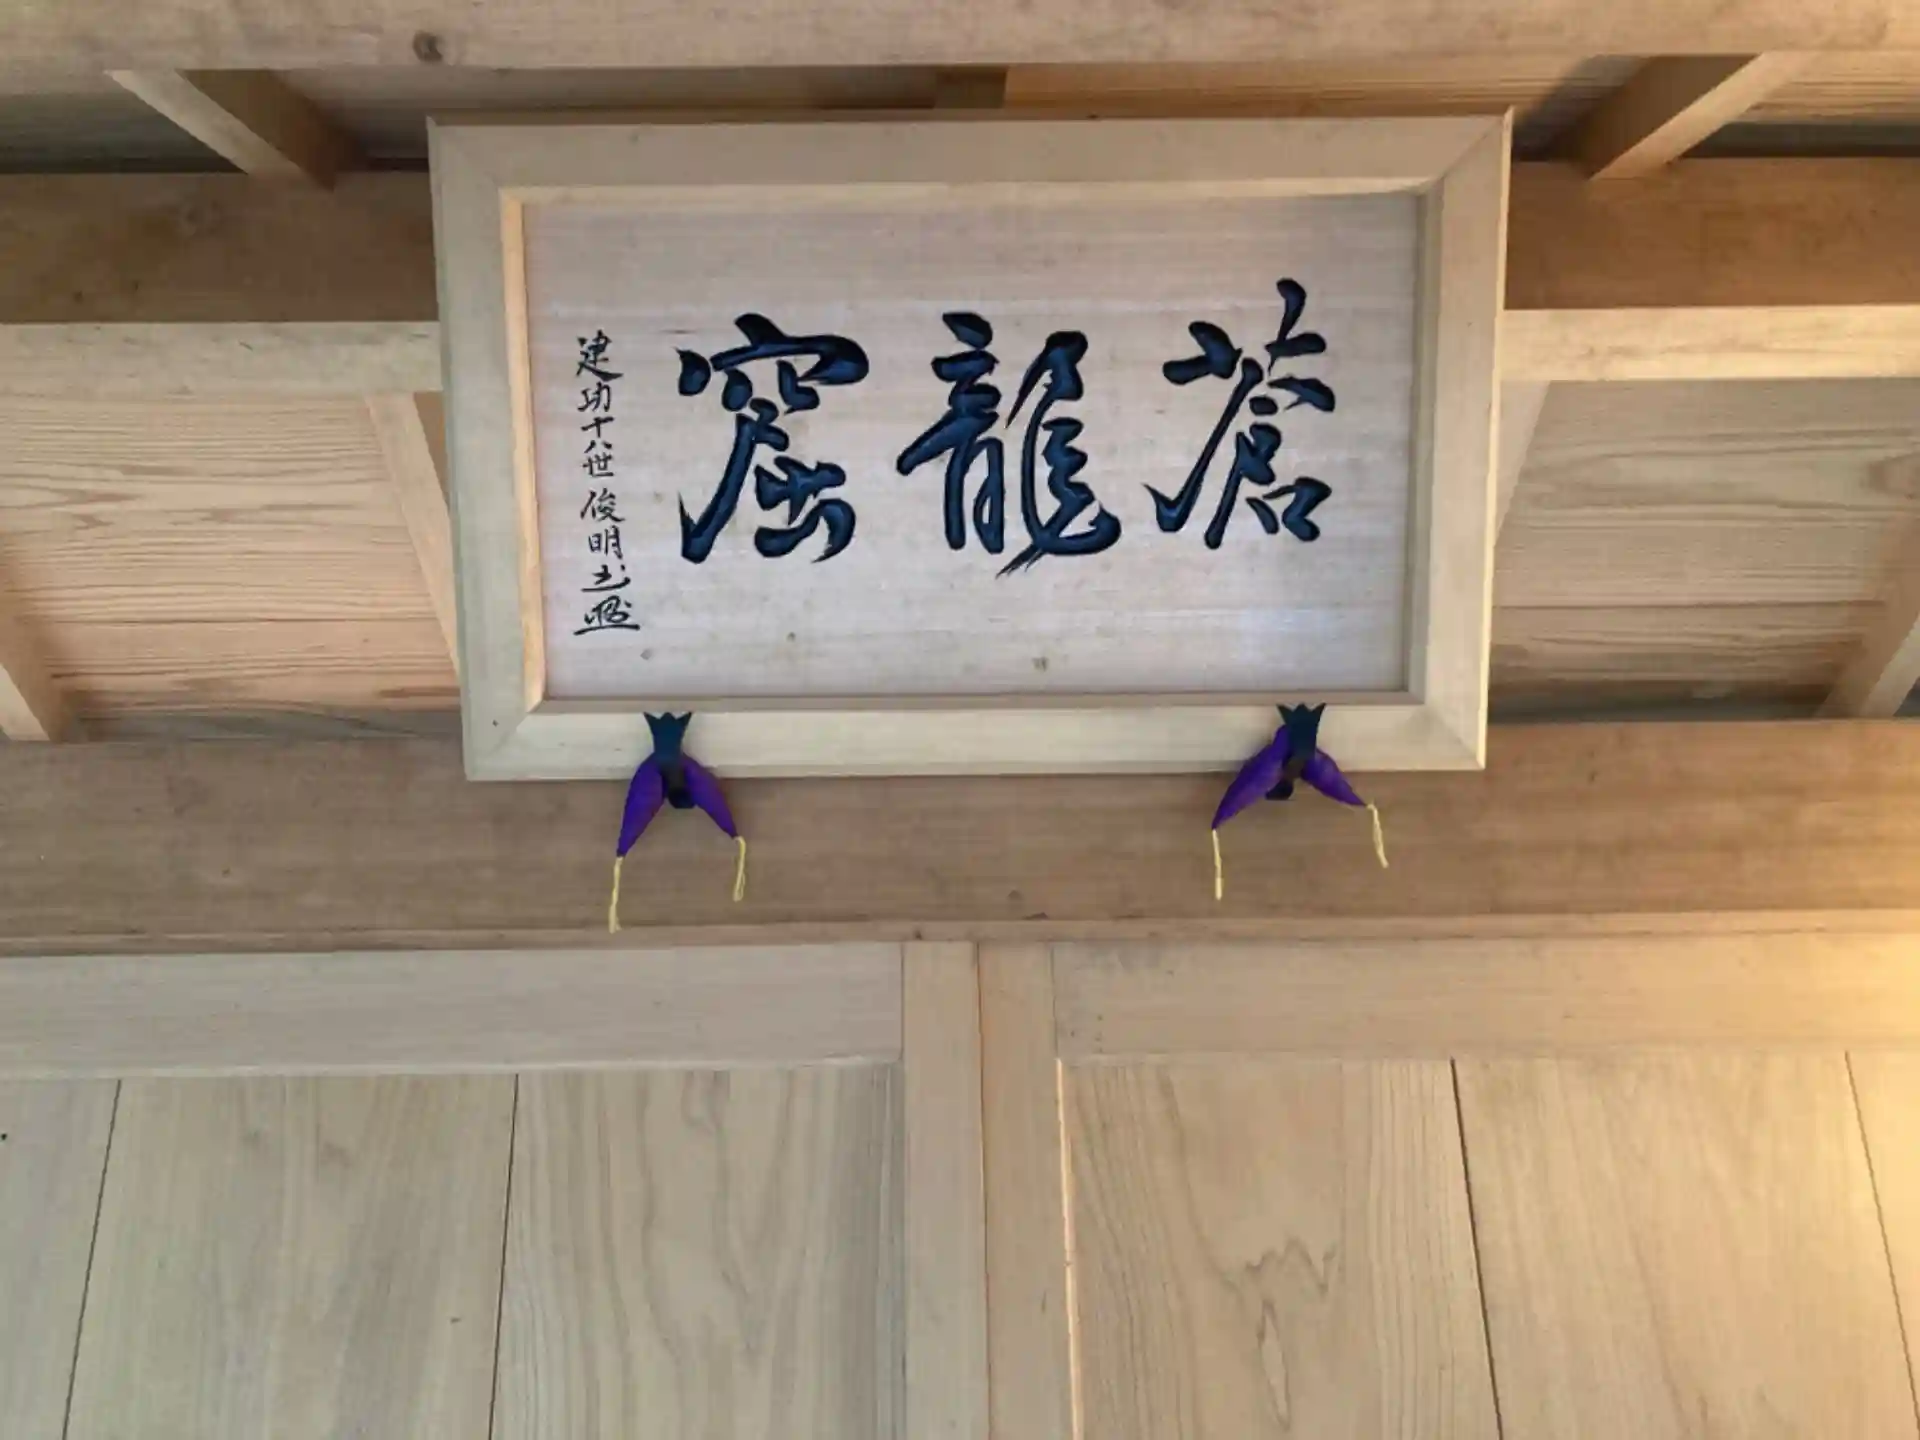 蒼龍窟
建功十八世俊明書